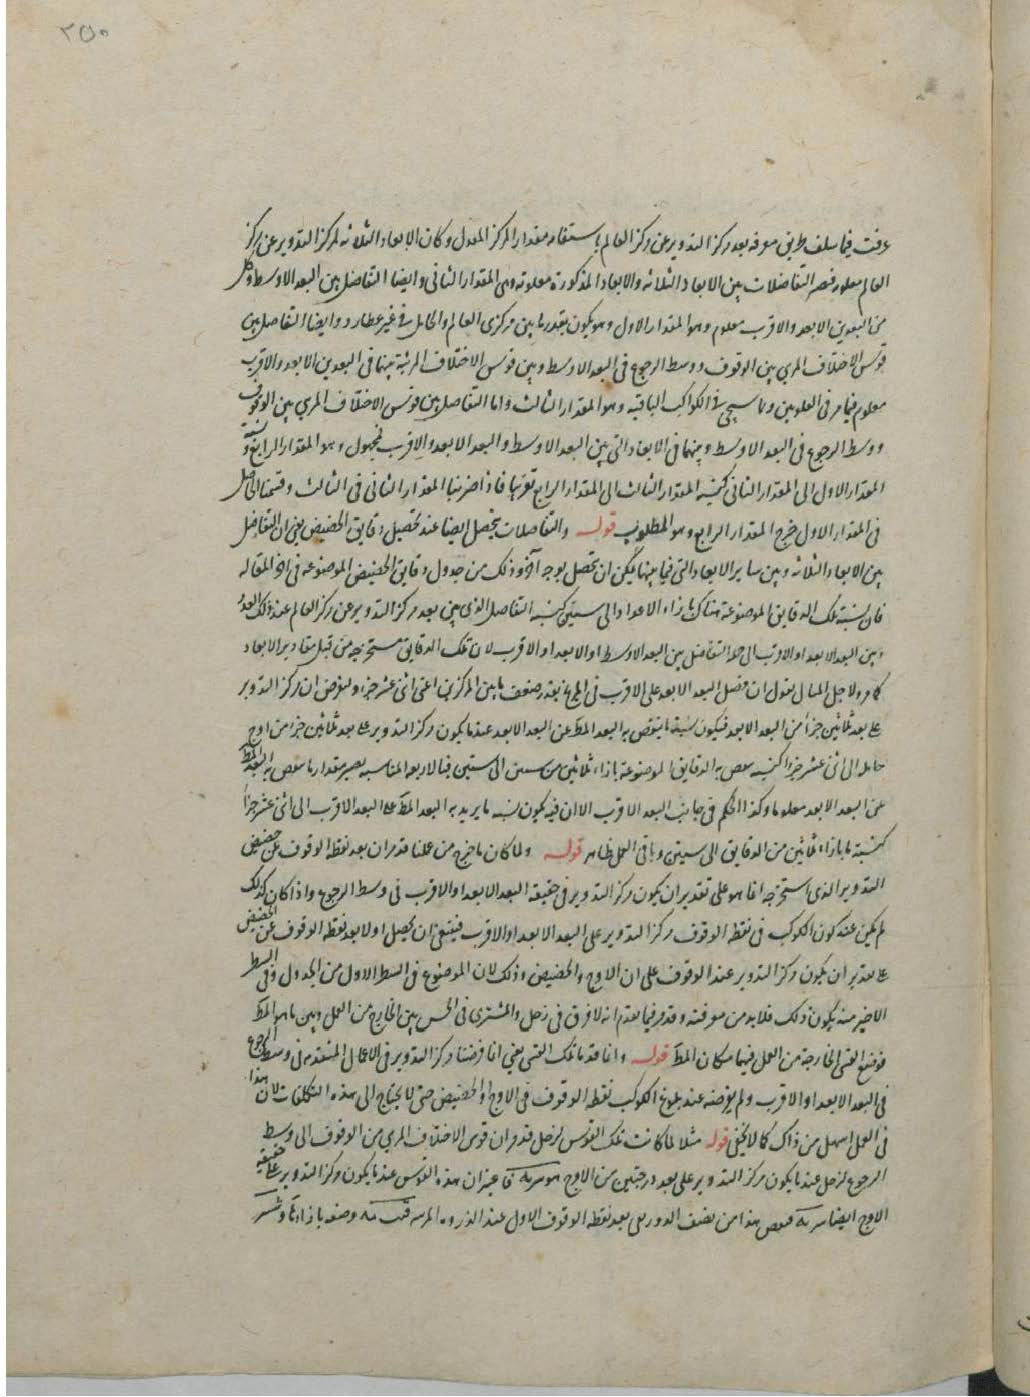 ٢٥٠
عرفت فيما سلف طريق معرفه بعد مركز التدوير عن مركز العالم باستقامه مقدار المركز المعدل وكان الابعاد الثلاثه لمركز التدوير عن مركز
العالم معلومه فتصير التفاضلات بين الابعاد الثلاثه والابعاد المذكورة معلومة وهى المقدار الثانى وايضا التفاضل بين البعد الاوسط وكل
من البعدين الابعد والاقرب معلوم وهو المقدار الاول وهو يكون بقدر ما بين مركزى العالم والحامل فى غير عطارد وايضا التفاضل بين
قوس الاختلاف المرى بين الوقوف ووسط الرجوع فى البعد الاوسط وبين قوس الاختلاف المرئية بينهما فى البعدين الابعد والاقرب
معلوم فيما مر فى العلويين وما سيجى فى الكواكب الباقيه وهو المقدار الثالث واما التفاضل بين قوس الاختلاف المرى بين الوقوف
ووسط الرجوع فى البعد الاوسط وبينهما فى الابعاد التى بين البعد الاوسط والبعد الابعد والاقرب فمجهول وهو المقدار الرابع ونسبة
المقدار الاول الى المقدار الثانى كنسبة المقدار الثالث الى المقدار الرابع تقريبا فاذا ضربنا المقدار الثانى فى الثالث وقسمنا الحاصل
فى المقدار الاول خرج المقدار الرابع وهو المطلوب قوله والتفاضلات يحصل ايضا عند تحصيل دقايق الحضيض يعنى ان التفاضل
بين الابعاد الثلاثه وبين ساير الابعاد التى فيما بينها يمكن ان تحصل بوجه آخر وذلك من جدول دقايق الحضيض الموضوعه فى اخر المقاله
فان نسبة تلك الدقايق الموضوعة هناك بازاء الاعداد الى ستين كنسبة التفاضل الذى بين بعد مركز التدوير عن مركز العالم عند ذلك العدد
وبين البعد الابعد او الاقرب الى التفاضل بين البعد الاوسط او الابعد او الاقرب لان تلك الدقايق مستخرجه من قبل مقادير الابعاد
كما مر ولاجل المثال نقول ان فضل البعد الابعد على الاقرب فى المريخ بقدر ضعف ما بين المركزين اعنى اثنى عشر جزءا ولنفرض ان مركز التدوير
على بعد ثلاثين جزءا من البعد الابعد فيكون نسبة ما ينقص به البعد المط عن البعد الابعد عندما يكون مركز التدوير على بعد ثلاثين جزءا من اوج
حامله الى اثنى عشر جزءا كنسبة الدقايق الموضوعة بازاء ثلاثين من ستين الى ستين فبالاربعه المتناسبه يصير مقدار ما ينقص به البعد المط
عن البعد الابعد معلوما وكذا الحكم فى جانب البعد الاقرب الا ان فيه يكون نسبه ما يزيد به البعد المط على البعد الاقرب الى اثنى عشر جزءا
كنسبة ما بازاء ثلاثين من الدقايق الى ستين وباقى العمل ظاهر قوله ولما كان ما خرج من عملنا قدم ان بعد نقطه الوقوف عن حضيض
التدوير الذى استخرجه انما هو على تقدير ان يكون مركز التدوير فى حقيقة البعد الابعد او الاقرب فى وسط الرجوع واذا كان كذلك
لم يكن عند كون الكوكب فى نقطه الوقوف مركز التدوير على البعد الابعد او الاقرب فينبغى ان يحصل اولا بعد نقطه الوقوف عن الحضيض
على تقدير ان يكون مركز التدوير عند الوقوف على الاوج والحضيض وذلك لان الموضوع فى السطر الاول من الجدول وفى السطر
الاخير منه يكون ذلك فلا بد من معرفته وقد مر فيما تقدم انه لا فرق فى زحل والمشترى فى الحس بين الخارج من العمل وبين ما هو المط
فوضع القسى الخارجة من العمل فيهما مكان المط قوله وانا قدما تلك القسى يعنى انا فرضنا مركز التدوير فى الاعمال المتقدمه فى وسط الرجوع
فى البعد الابعد او الاقرب ولم يفرضه عند بلوغ الكوكب نقطه الوقوف فى الاوج او الحضيض حتى لا يحتاج الى هذه التكلفات لان هذا
فى العمل اسهل من ذاك كما لا يخفى قوله مثلا لما كانت تلك القوس لزحل قدمر ان قوس الاختلاف المرى من الوقوف الى وسط
الرجوع لزحل عندما يكون مركز التدوير على بعد درجتين من الاوج هو فاعتبر ان هذه القوس عندما يكون مركز التدوير على حقيقة
الاوج ايضا هذا من نصف الدور بقى بعد نقطه الوقوف الاول عند الذروه المرئيه وضعه بازاء